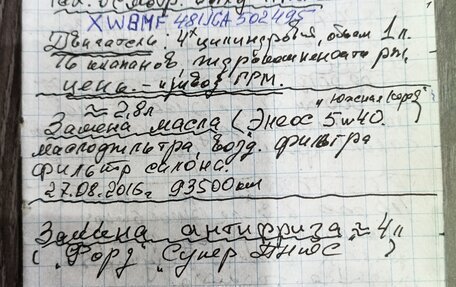 Тех. осмотр.
XWBMF 481JGA 502495
Двигатель: 4х цилиндровый, объем 1 л.
16 клапанов гидрокомпенсаторы,
цепь - привод ГРМ.
≈ 2,8л "Южная Корея"
Замена масла (Энеос 5w40.
маслофильтра, возд. фильтра
фильтр салона.
27.08.2016г 93500км
Замена антифриза ≈ 4л
( "Форд" "Супер Плюс" )